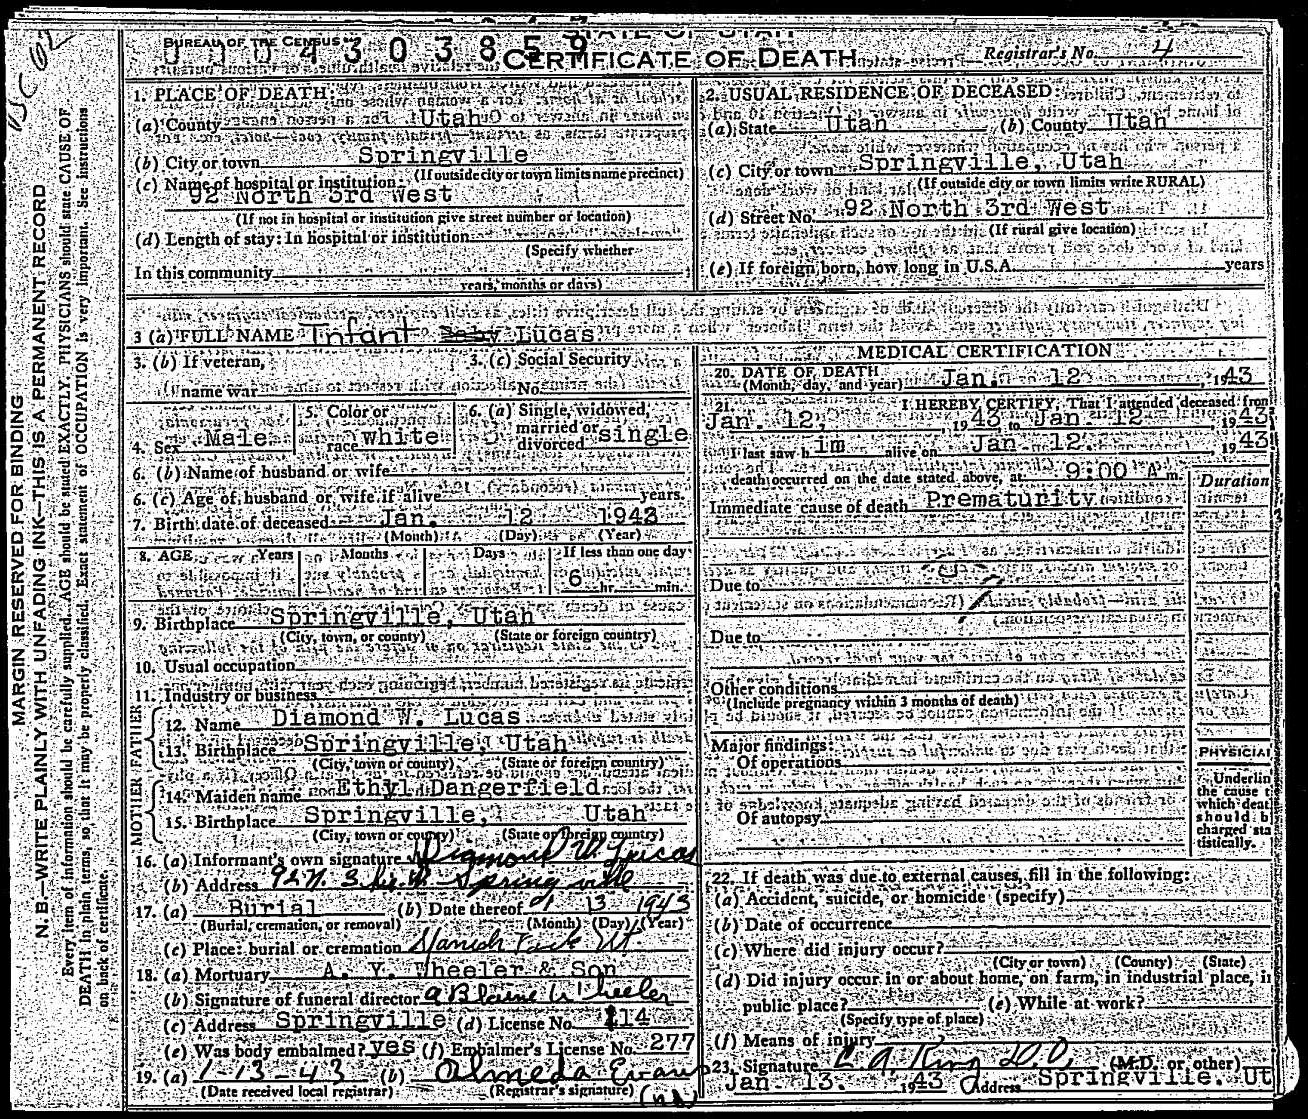 VSC 62
BUREAU OF THE CENSUS
STATE OF UTAH
CERTIFICATE OF DEATH
Registrar's No. 4
MARGIN RESERVED FOR BINDING
N.B—WRITE PLAINLY WITH UNFADING INK—THIS IS A PERMANENT RECORD
Every item of information should be carefully supplied. AGE should be stated EXACTLY. PHYSICIANS should state CAUSE OF
DEATH in plain terms, so that it may be properly classified. Exact statement of OCCUPATION is very important. See instructions
on back of certificate.
1. PLACE OF DEATH:
(a) County Utah
(b) City or town Springville
(If outside city or town limits name precinct)
(c) Name of hospital or institution:
92 North 3rd West
(If not in hospital or institution give street number or location)
(d) Length of stay: In hospital or institution
(Specify whether
In this community
years, months or days)
2. USUAL RESIDENCE OF DECEASED:
(a) State Utah (b) County Utah
(c) City or town Springville, Utah
(If outside city or town limits write RURAL)
(d) Street No. 92 North 3rd West
(If rural give location)
(e) If foreign born, how long in U.S.A. years
3 (a) FULL NAME Infant Baby Lucas
3. (b) If veteran, 3. (c) Social Security
name war No.
4. Sex Male
5. Color or
race white
6. (a) Single, widowed,
married or
divorced single
6. (b) Name of husband or wife
6. (c) Age of husband or wife if alive years.
7. Birth date of deceased Jan. 12 1943
(Month) (Day) (Year)
8. AGE Years Months Days If less than one day
6 hr. min.
9. Birthplace Springville, Utah
(City, town, or county) (State or foreign country)
10. Usual occupation
11. Industry or business
FATHER
12. Name Diamond W. Lucas
13. Birthplace Springville, Utah
(City, town or county) (State or foreign country)
MOTHER
14. Maiden name Ethyl Dangerfield
15. Birthplace Springville, Utah
(City, town or county) (State or foreign country)
16. (a) Informant's own signature Diamond W. Lucas
(b) Address 92 N. 3 W. Springville
17. (a) Burial (b) Date thereof 1 13 1943
(Burial, cremation, or removal) (Month) (Day) (Year)
(c) Place: burial or cremation Spanish Fork Ut
18. (a) Mortuary A. Y. Wheeler & Son
(b) Signature of funeral director A Blaine Wheeler
(c) Address Springville (d) License No. 114
(e) Was body embalmed? yes (f) Embalmer's License No. 277
19. (a) 1-13-43 (b) Almeda Evans
(Date received local registrar) (Registrar's signature)
MEDICAL CERTIFICATION
20. DATE OF DEATH
(Month, day, and year) Jan. 12, 1943
21. I HEREBY CERTIFY, That I attended deceased from
Jan. 12, 1943 to Jan. 12, 1943
I last saw him alive on Jan 12. 1943
death occurred on the date stated above, at 9:00 A m.
Duration
Immediate cause of death Prematurity
Due to
Due to
Other conditions
(Include pregnancy within 3 months of death)
Major findings:
Of operations
Of autopsy
PHYSICIAN
Underlin
the cause t
which deat
should b
charged sta
tistically.
22. If death was due to external causes, fill in the following:
(a) Accident, suicide, or homicide (specify)
(b) Date of occurrence
(c) Where did injury occur?
(City or town) (County) (State)
(d) Did injury occur in or about home, on farm, in industrial place, in
public place? (e) While at work?
(Specify type of place)
(f) Means of injury
23. Signature C. A. King D.O. (M.D. or other)
Jan. 13. 1943 Address Springville. Ut